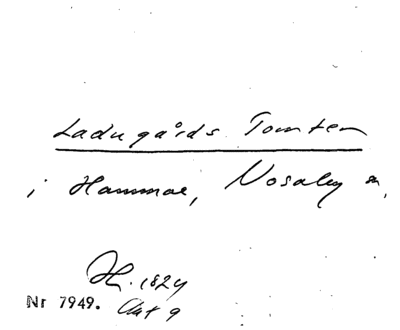 Ladugårds Tomten
i Hammar, Nosaby sn,
H. 1824
Nr 7949. Akt 9